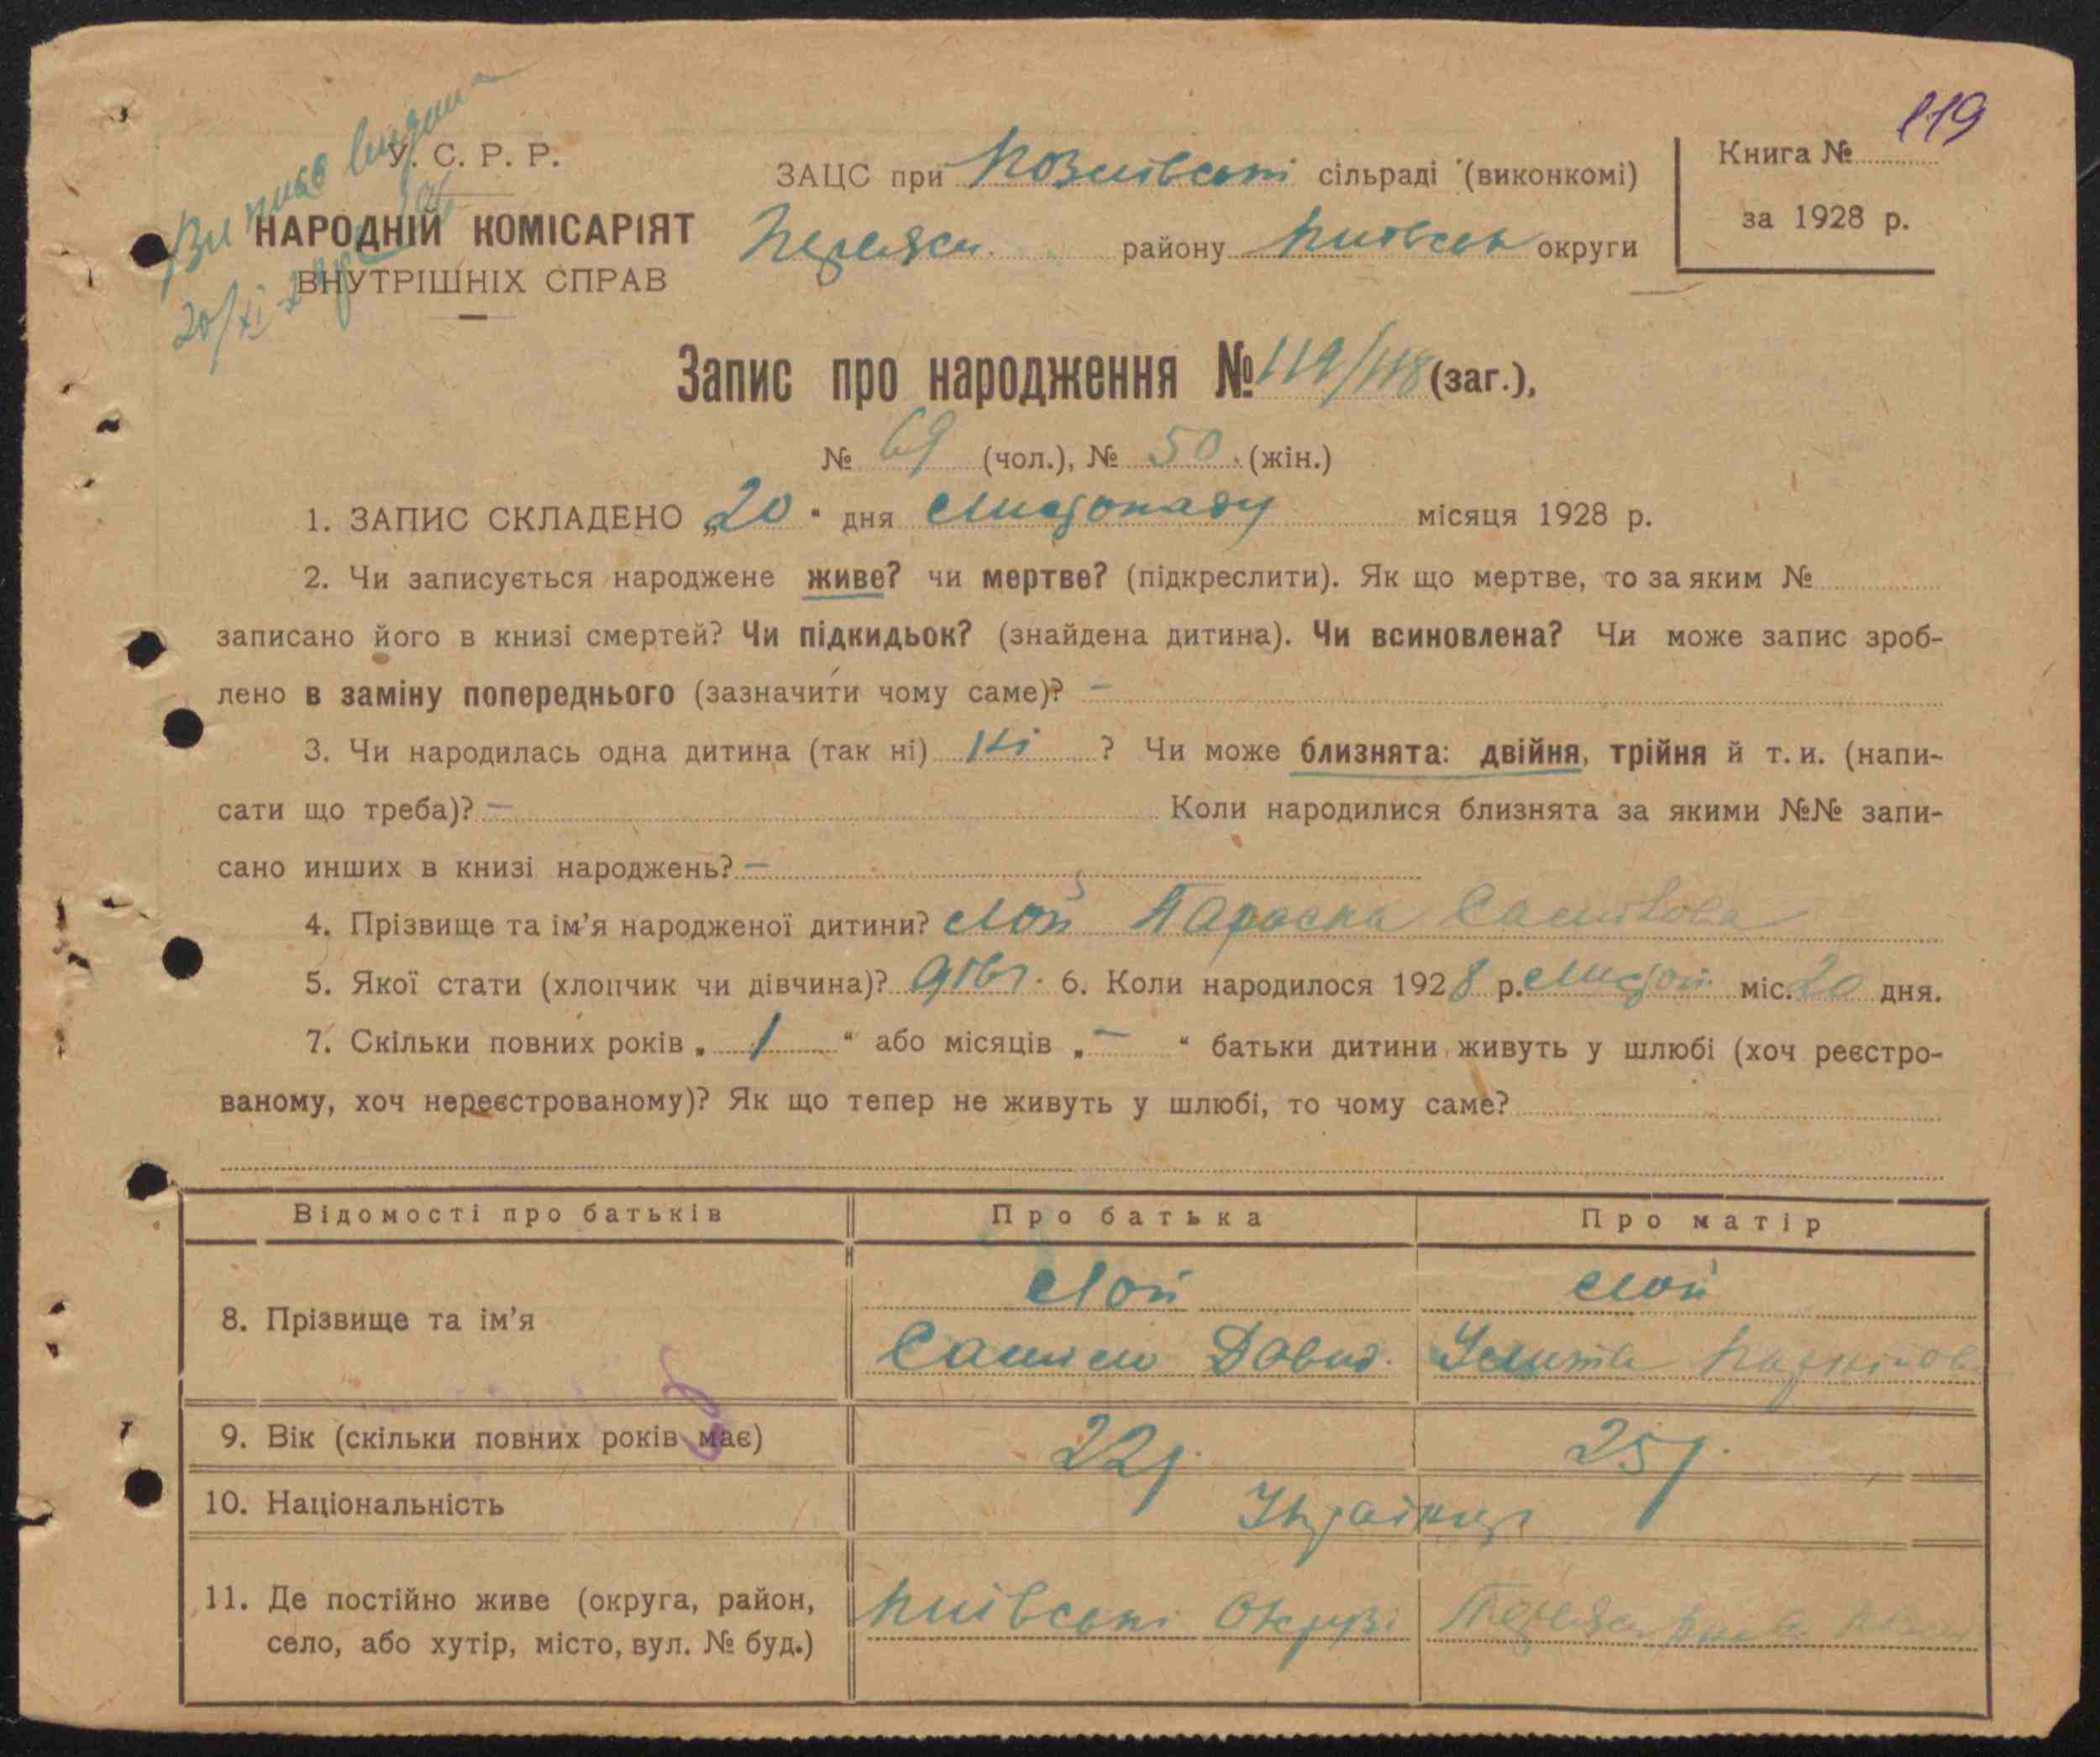 119
Виписо видані
20/XI
У. С. Р. Р.
НАРОДНІЙ КОМІСАРІЯТ
ВНУТРІШНІХ СПРАВ
ЗАЦС при Козлівські сільраді (виконкомі)
Переясл. району Київськ округи
Книга №
за 1928 р.
Запис про народження № 119/118 (заг.),
№ 69 (чол.), № 50 (жін.)
1. ЗАПИС СКЛАДЕНО „20“ дня Листопаду місяця 1928 р.
2. Чи записується народжене живе? чи мертве? (підкреслити). Як що мертве, то за яким №
записано його в книзі смертей? Чи підкидьок? (знайдена дитина). Чи всиновлена? Чи може запис зроб-
лено в заміну попереднього (зазначити чому саме)? –
3. Чи народилась одна дитина (так ні) Ні ? Чи може близнята: двійня, трійня й т. и. (напи-
сати що треба)? – Коли народилися близнята за якими №№ запи-
сано инших в книзі народжень? –
4. Прізвище та ім’я народженої дитини? Лой Параска Самілова
5. Якої стати (хлопчик чи дівчина)? дівч. 6. Коли народилося 1928 р. Листоп. міс. 20 дня.
7. Скільки повних років „ 1 “ або місяців „ – “ батьки дитини живуть у шлюбі (хоч реєстро-
ваному, хоч нереєстрованому)? Як що тепер не живуть у шлюбі, то чому саме?
Відомості про батьків Про батька Про матір
8. Прізвище та ім’я Лой Лой
Саміло Давид. Улита
9. Вік (скільки повних років має) 22 р. 25 р.
10. Національність Українці
11. Де постійно живе (округа, район,
село, або хутір, місто, вул. № буд.) Київські Окрузі